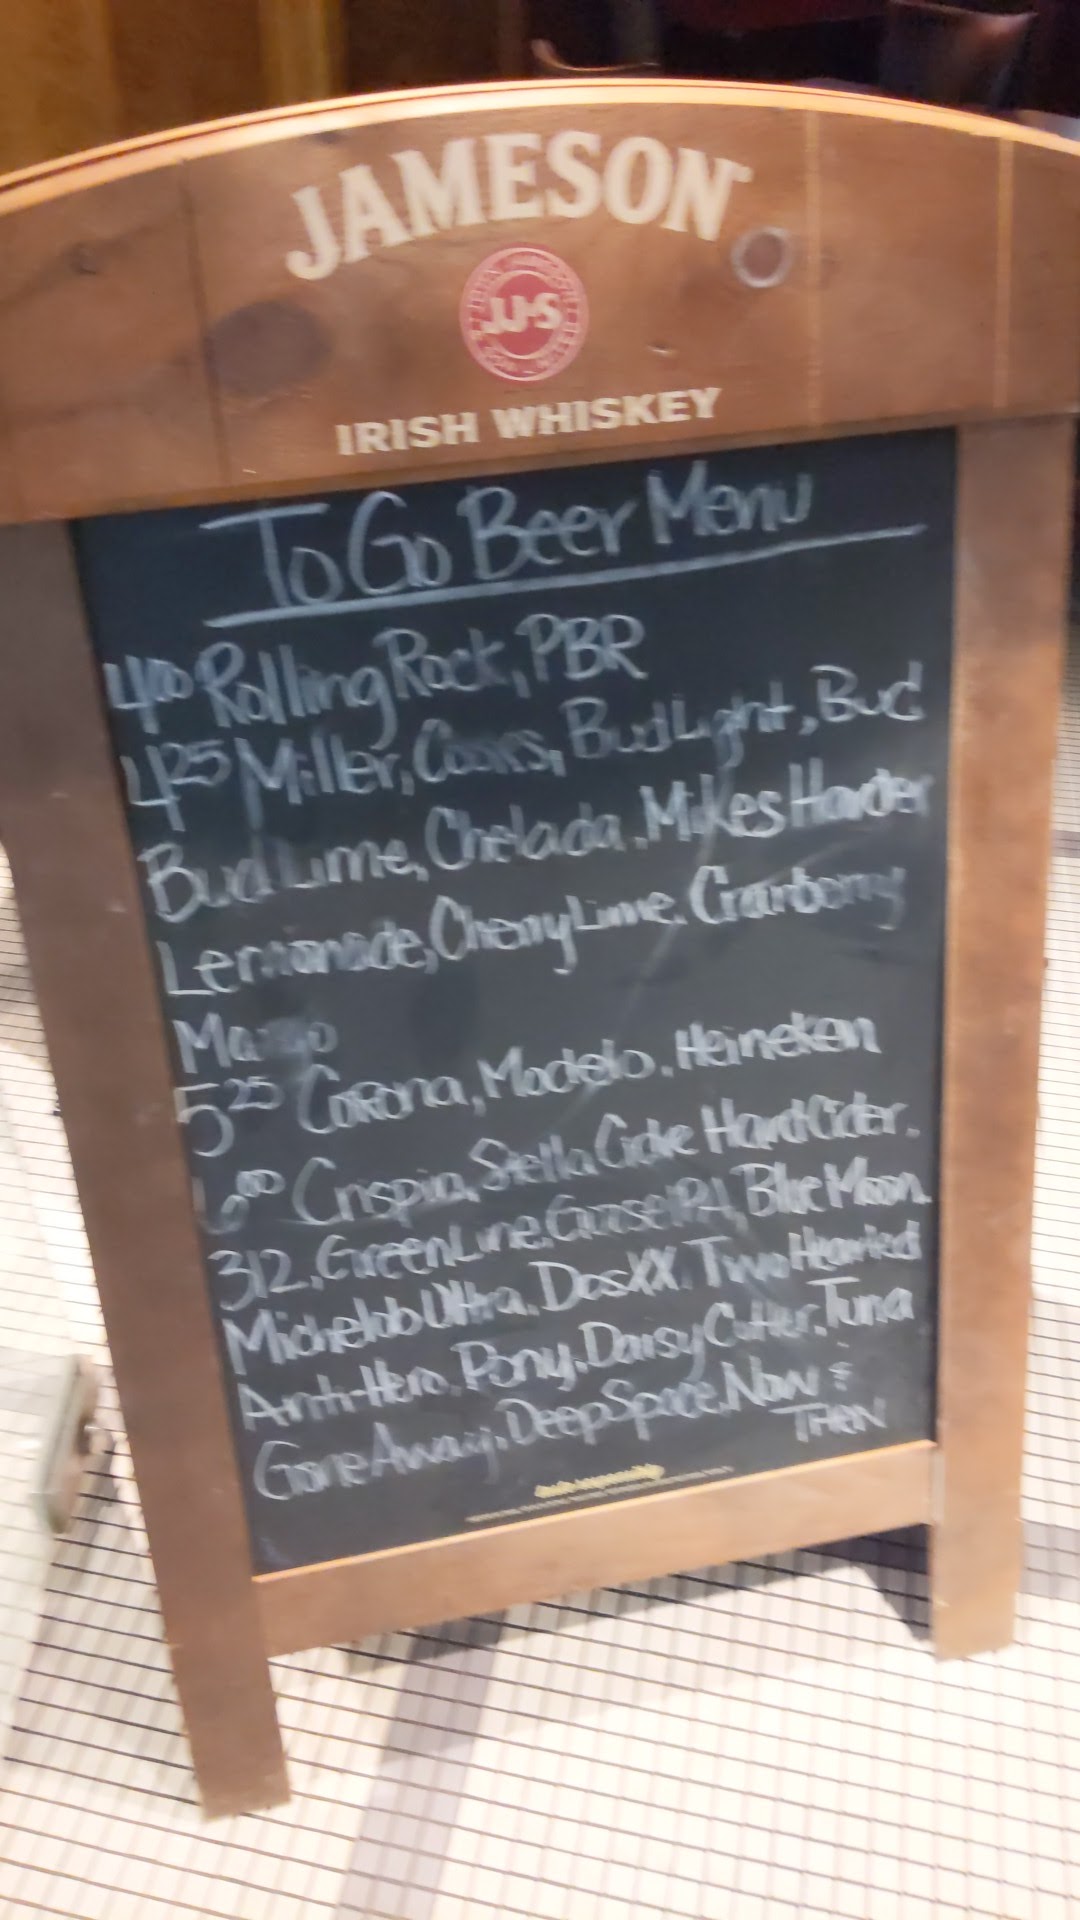 JAMESON
JJ&S
IRISH WHISKEY
To Go Beer Menu
4⁰⁰ Rolling Rock, PBR
4²⁵ Miller, Coors, Bud Light, Bud
Bud Lime, Chelada, Mikes Harder
Lemonade, Cherry Lime, Cranberry
Mango
5²⁵ Corona, Modelo, Heineken
6⁰⁰ Crispin, Stella Cidre Hard Cider,
312, Green Line, Goose IPA, Blue Moon
Michelob Ultra, Dos XX, Two Hearted
Anti-Hero, Pony, Daisy Cutter, Tuna
Gone Away, Deep Space, Now &
Then